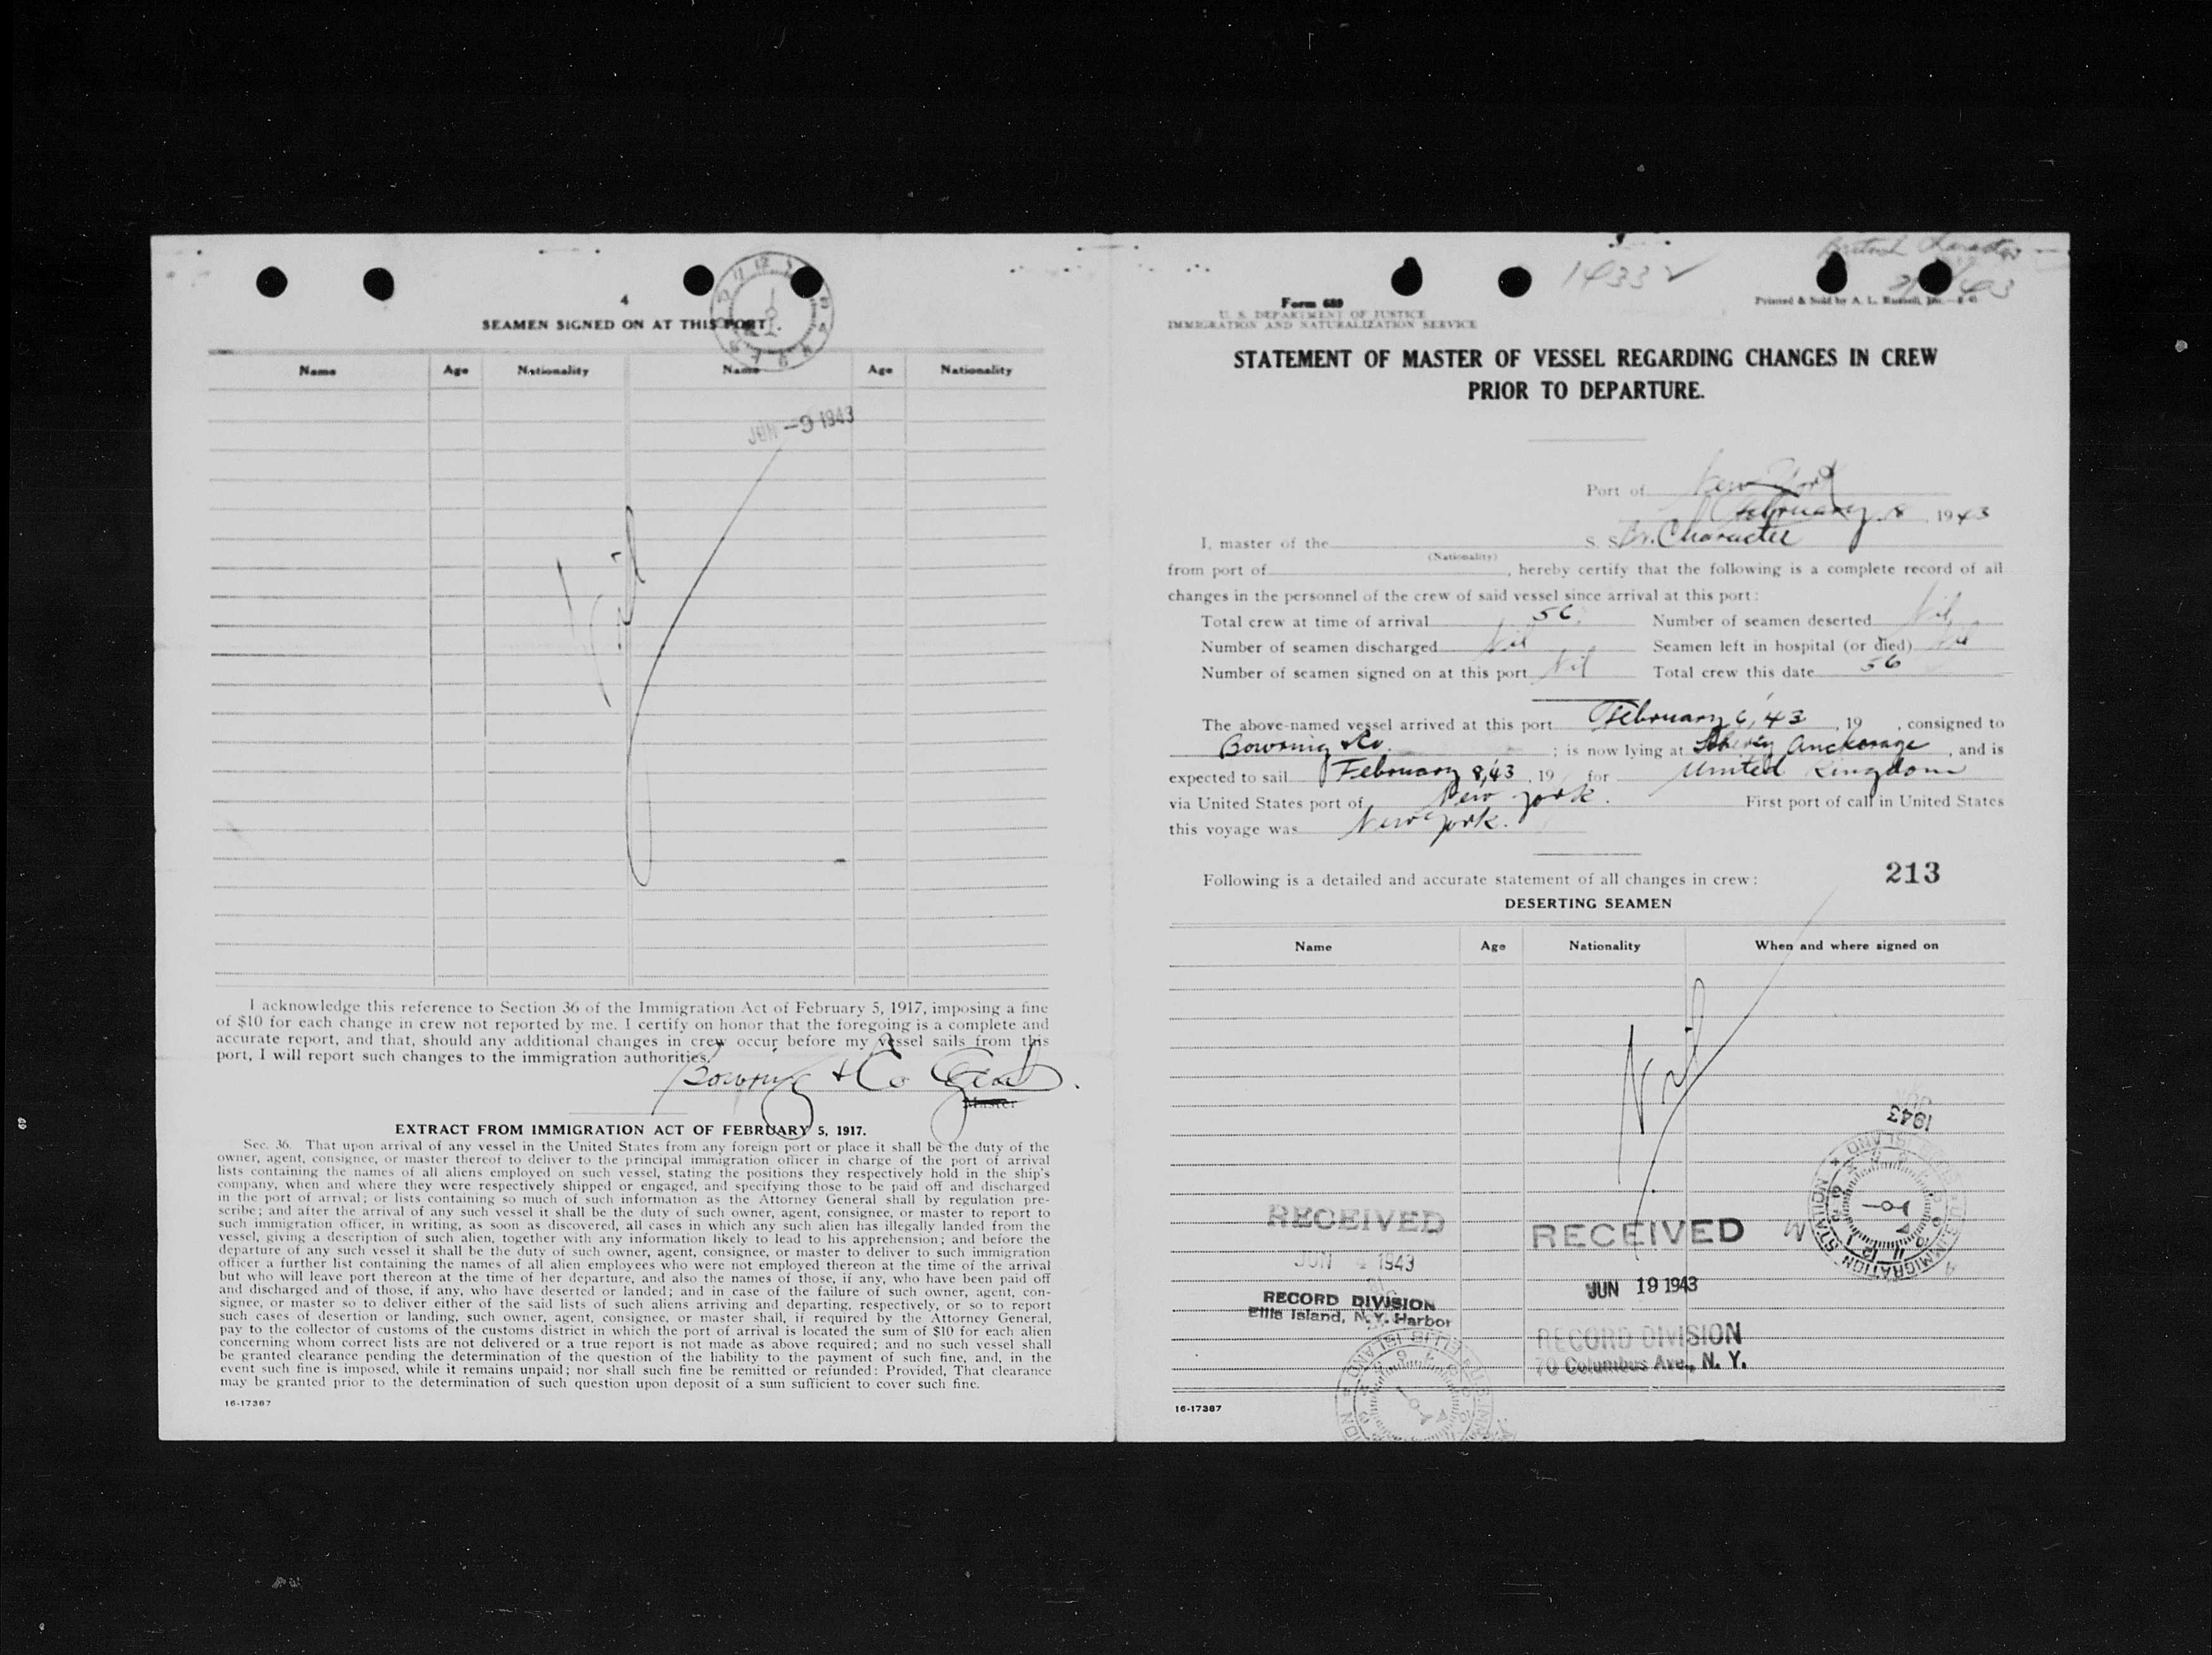 4
SEAMEN SIGNED ON AT THIS PORT.
Name Age Nationality Name Age Nationality
JUN -9 1943
Nil
I acknowledge this reference to Section 36 of the Immigration Act of February 5, 1917, imposing a fine
of $10 for each change in crew not reported by me. I certify on honor that the foregoing is a complete and
accurate report, and that, should any additional changes in crew occur before my vessel sails from this
port, I will report such changes to the immigration authorities.
Bowring & Co
Master
EXTRACT FROM IMMIGRATION ACT OF FEBRUARY 5, 1917.
Sec. 36. That upon arrival of any vessel in the United States from any foreign port or place it shall be the duty of the
owner, agent, consignee, or master thereof to deliver to the principal immigration officer in charge of the port of arrival
lists containing the names of all aliens employed on such vessel, stating the positions they respectively hold in the ship's
company, when and where they were respectively shipped or engaged, and specifying those to be paid off and discharged
in the port of arrival; or lists containing so much of such information as the Attorney General shall by regulation pre-
scribe; and after the arrival of any such vessel it shall be the duty of such owner, agent, consignee, or master to report to
such immigration officer, in writing, as soon as discovered, all cases in which any such alien has illegally landed from the
vessel, giving a description of such alien, together with any information likely to lead to his apprehension; and before the
departure of any such vessel it shall be the duty of such owner, agent, consignee, or master to deliver to such immigration
officer a further list containing the names of all alien employees who were not employed thereon at the time of the arrival
but who will leave port thereon at the time of her departure, and also the names of those, if any, who have been paid off
and discharged and of those, if any, who have deserted or landed; and in case of the failure of such owner, agent, con-
signee, or master so to deliver either of the said lists of such aliens arriving and departing, respectively, or so to report
such cases of desertion or landing, such owner, agent, consignee, or master shall, if required by the Attorney General,
pay to the collector of customs of the customs district in which the port of arrival is located the sum of $10 for each alien
concerning whom correct lists are not delivered or a true report is not made as above required; and no such vessel shall
be granted clearance pending the determination of the question of the liability to the payment of such fine, and, in the
event such fine is imposed, while it remains unpaid; nor shall such fine be remitted or refunded: Provided, That clearance
may be granted prior to the determination of such question upon deposit of a sum sufficient to cover such fine.
16-17387
British
1433
Form 689
Printed & Sold by A. L. Russell, Inc.
U. S. DEPARTMENT OF JUSTICE
IMMIGRATION AND NATURALIZATION SERVICE
STATEMENT OF MASTER OF VESSEL REGARDING CHANGES IN CREW
PRIOR TO DEPARTURE.
Port of New York
February 8, 1943
I, master of the S. S. Br. Character
(Nationality)
from port of , hereby certify that the following is a complete record of all
changes in the personnel of the crew of said vessel since arrival at this port:
Total crew at time of arrival 56. Number of seamen deserted Nil
Number of seamen discharged Nil Seamen left in hospital (or died) Nil
Number of seamen signed on at this port Nil Total crew this date 56
The above-named vessel arrived at this port February 6, 43, 19 , consigned to
Bowring & Co. ; is now lying at Anchorage, and is
expected to sail February 8, 43, 19 for United Kingdom
via United States port of New York. First port of call in United States
this voyage was New York.
Following is a detailed and accurate statement of all changes in crew: 213
DESERTING SEAMEN
Name Age Nationality When and where signed on
Nil
1943
RECEIVED
JUN 4 1943
RECORD DIVISION
Ellis Island, N.Y. Harbor
RECEIVED
JUN 19 1943
RECORD DIVISION
70 Columbus Ave., N. Y.
IMMIGRATION STATION
16-17387